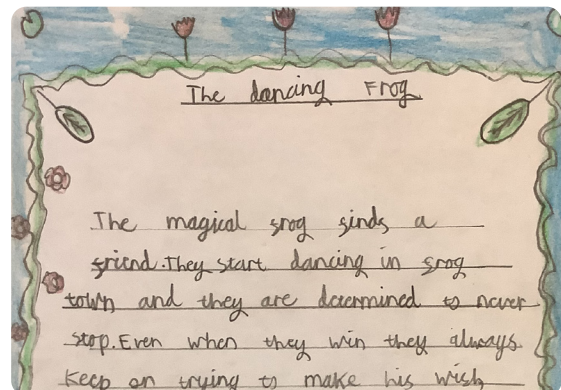 The dancing Frog
The magical frog finds a
friend. They start dancing in frog
town and they are determined to never
stop. Even when they win they always
Keep on trying to make his wish